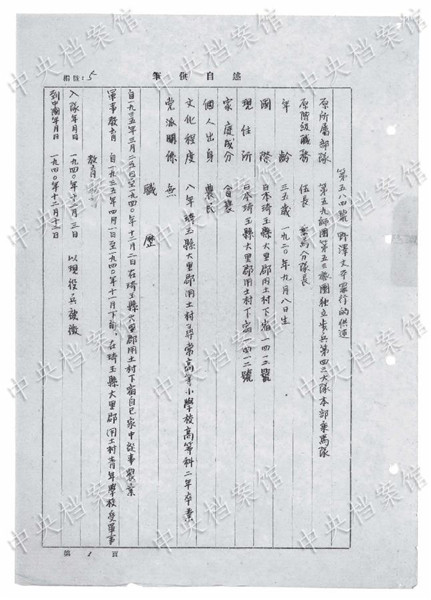 述自供筆
第五八四號 野澤文平罪行的供述
原所屬部隊 第五九師團第五三旅團独立步兵第四三大隊本部乘馬隊
原階級職務 伍長 乘馬分隊長
年齡 三五歲 一九二〇年九月八日生
國際 日本埼玉縣大里郡用土村下宿一四一二號
現住所 日本埼玉縣大里郡用土村下宿一四一二號
家庭成分 貧農
個人出身 農民
文化程度 八年埼玉縣大里郡用土村尋常高等小學校高等科二年卒業
黨派關係 無
職歷
自一九三五年三月二五日至一九四〇年十二月二日在埼玉縣大里郡用土村下宿自己家中從事農業
軍事教育 自一九三五年四月一日至一九四〇年十一月下旬在埼玉縣大里郡用土村青年學校受軍事教育
入隊年月日 一九四〇年十二月三日 以現役兵被徵
到中國年月日 一九四〇年十二月
第1頁
中央档案馆
中央档案馆
中央档案馆
中央档案馆